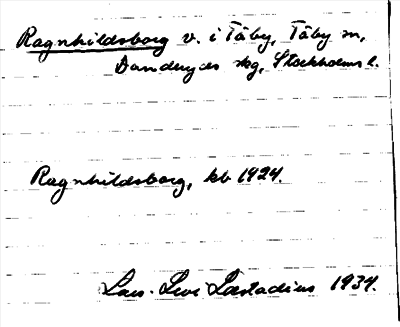 Ragnhildsborg v. i Täby, Täby sn,
Danderyds skg, Stockholms l.
Ragnhildsborg, kb 1924.
Lars-Levi Læstadius 1934.